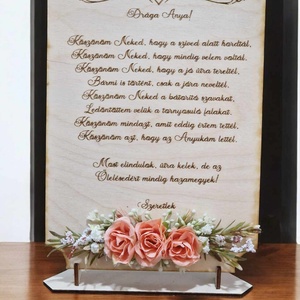 Drága Anya!
Köszönöm Neked, hogy a szíved alatt hordtál,
Köszönöm Neked, hogy mindig velem voltál.
Köszönöm Neked, hogy a jó útra tereltél,
Bármi is történt, csak a jóra neveltél.
Köszönöm Neked a bátorító szavakat,
Ledöntöttem velük a tornyosuló falakat.
Köszönöm mindazt, amit eddig értem tettél,
Köszönöm azt, hogy az Anyukám lettél.
Most elindulok, útra kelek, de az
Ölelésedért mindig hazamegyek!
Szeretlek